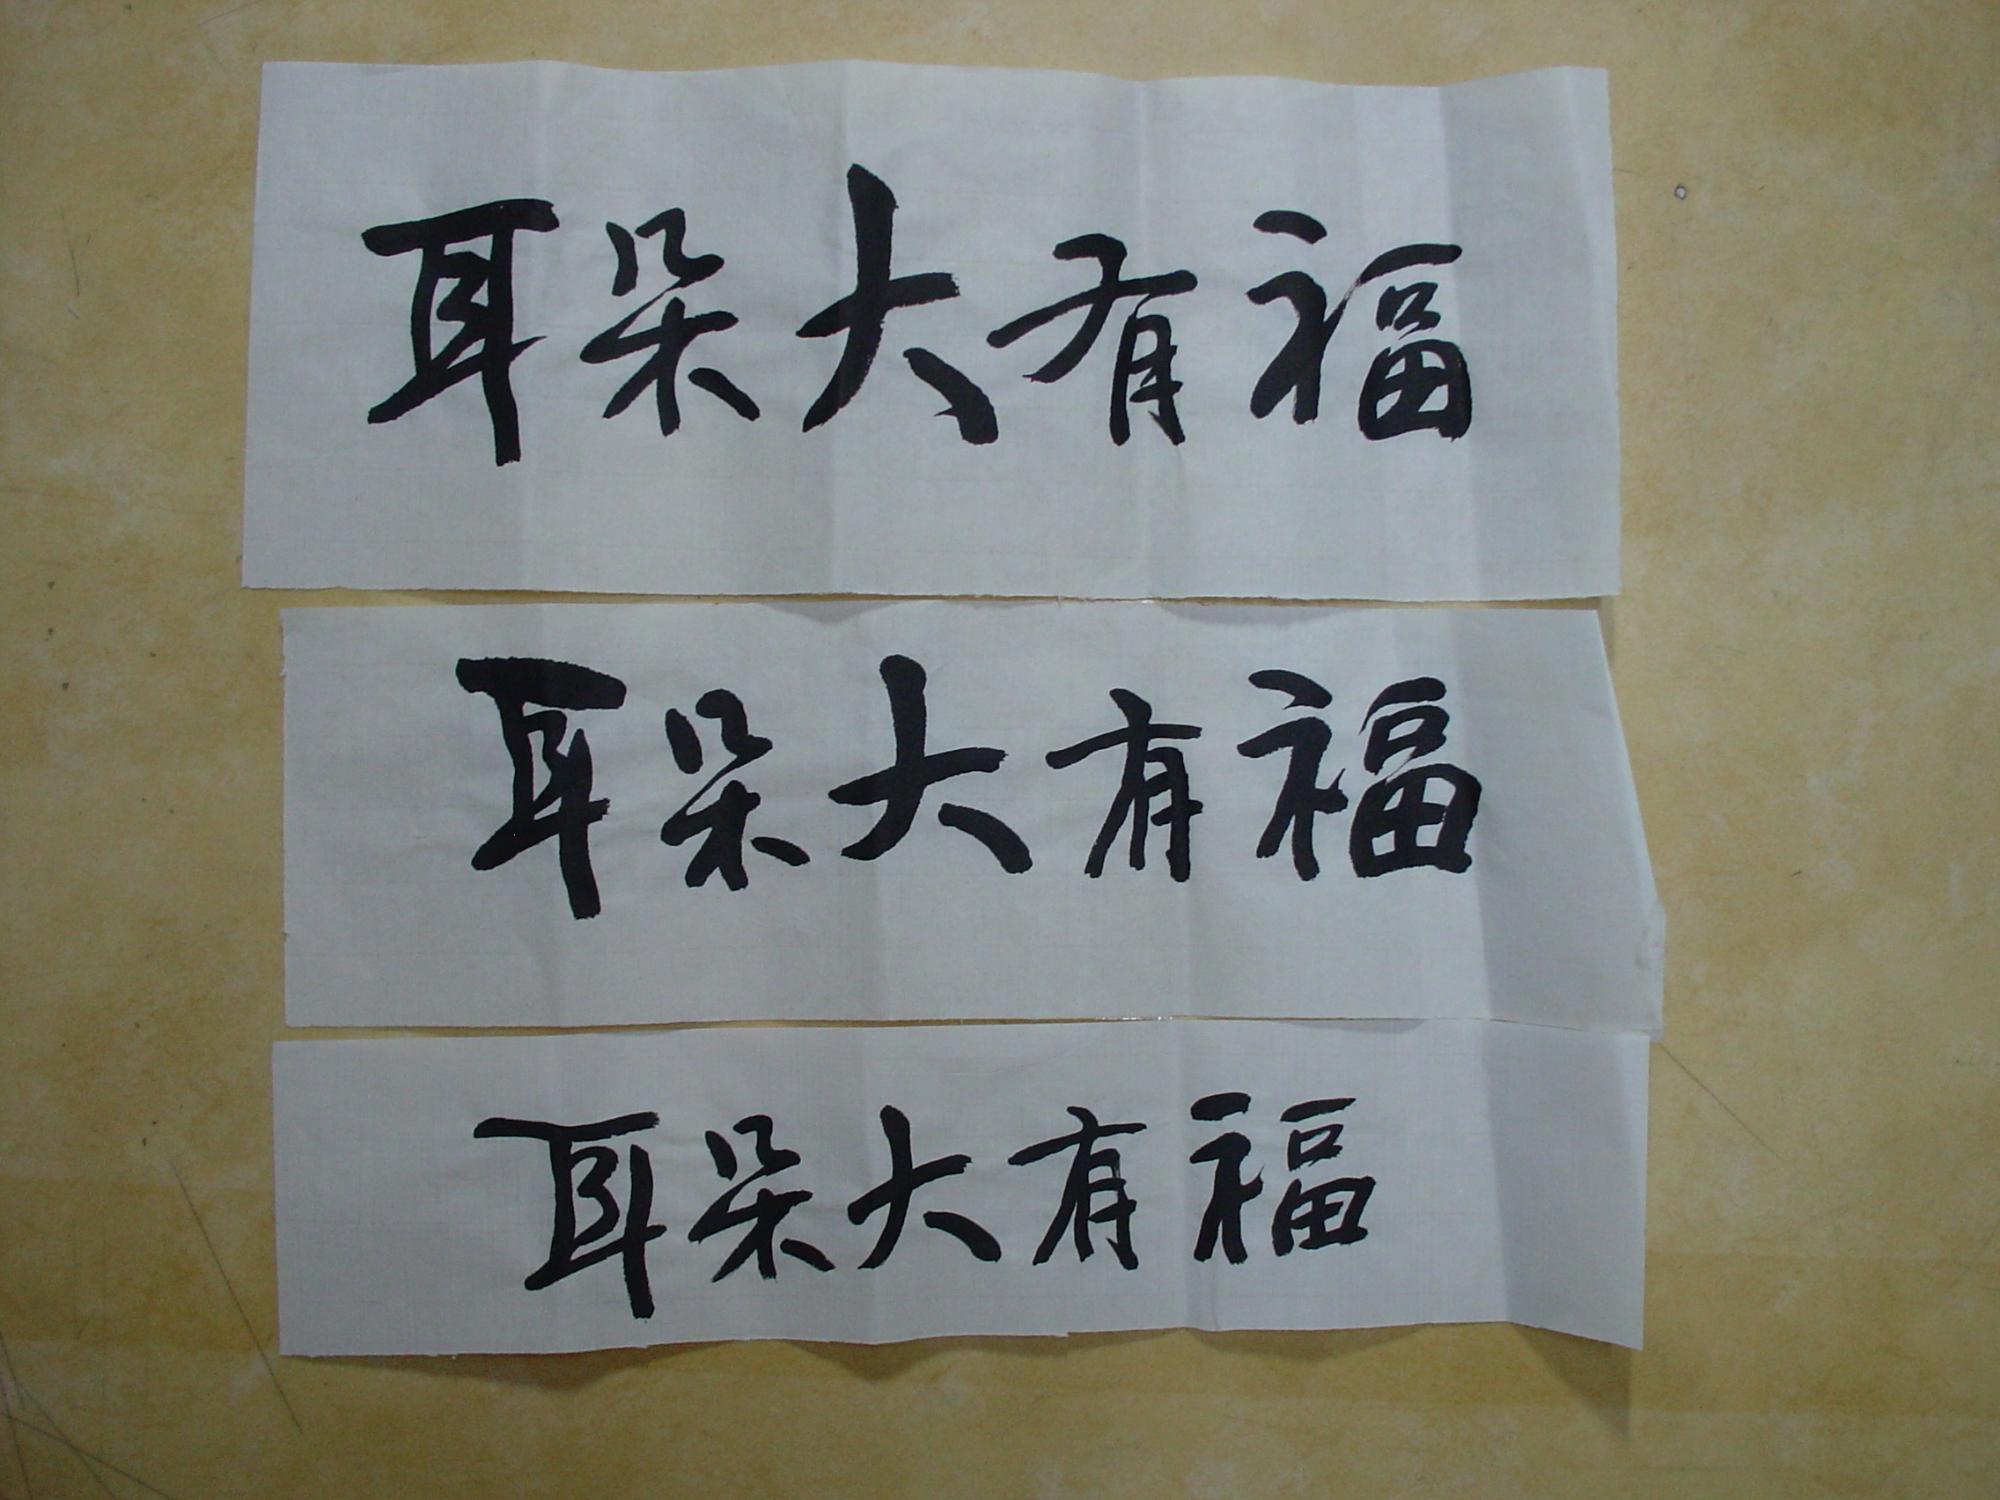 耳朵大有福
耳朵大有福
耳朵大有福